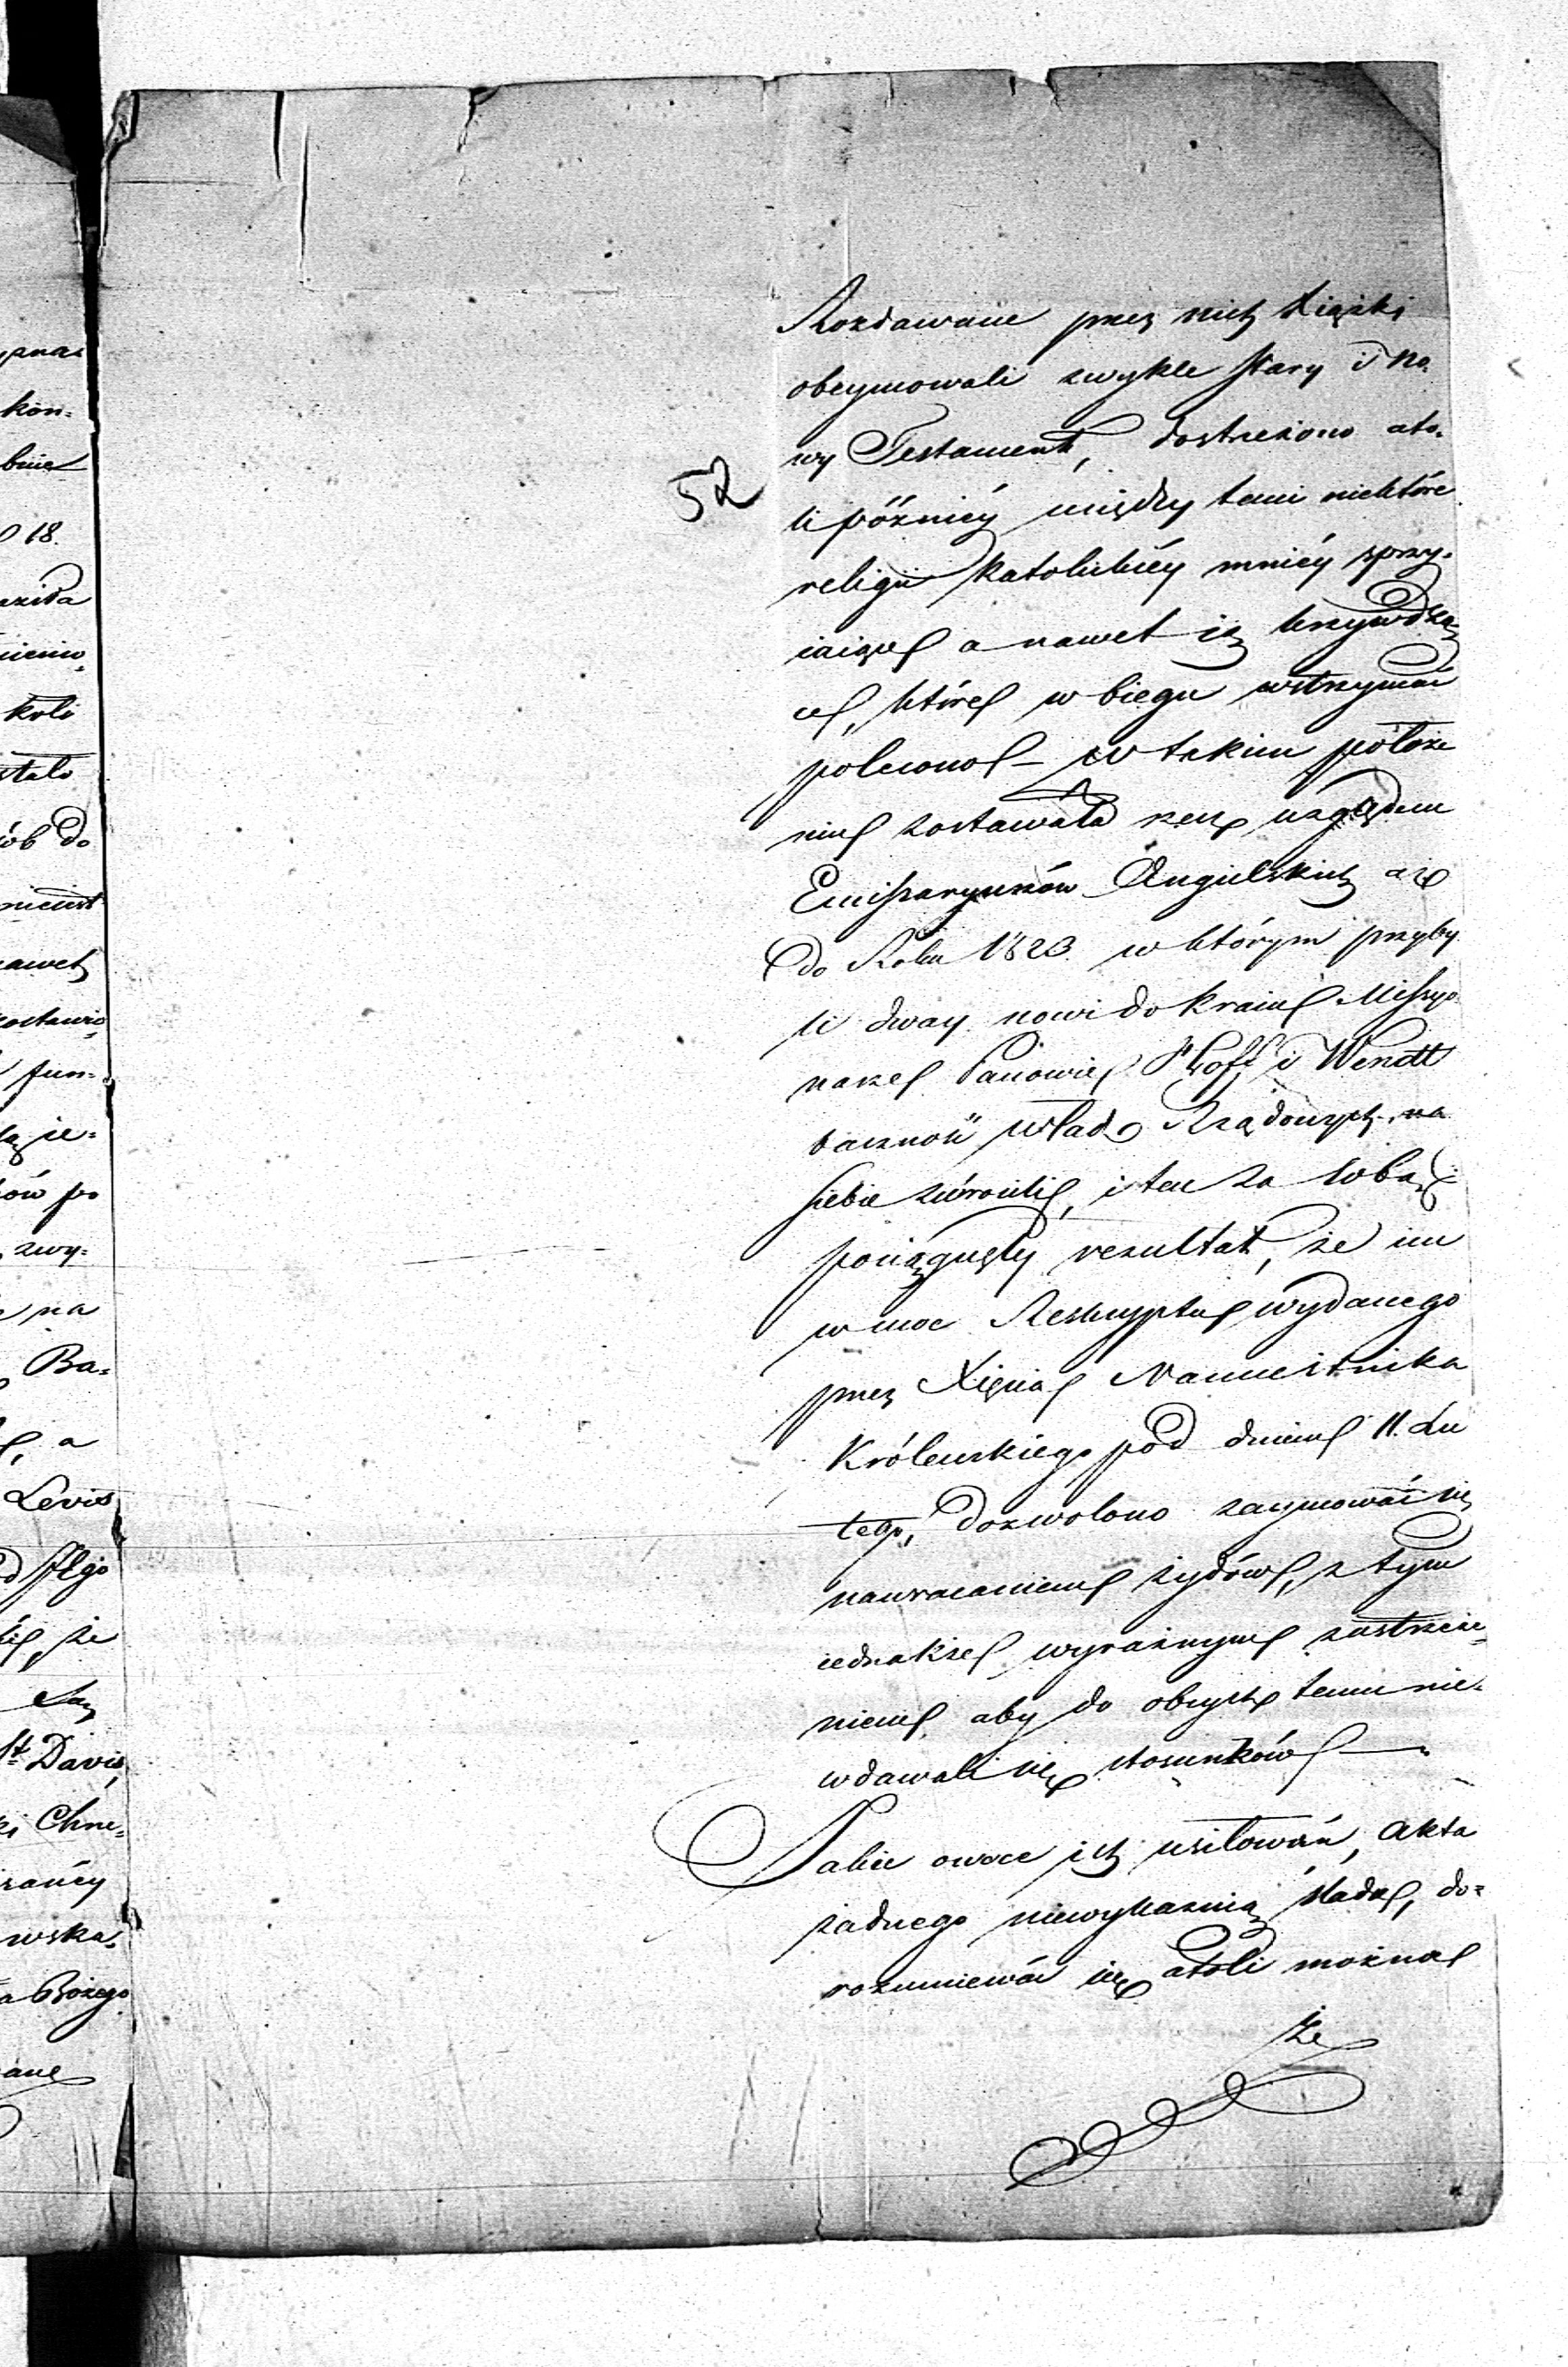 yzna=
kon=
bnie
018.
koli
stało
ób do
nawet
zostawio=
fun=
ią ie=
ków po
zwy=
na
Ba=
a
Levis
że
St. Davis,
ki Chrze=
wska=
a Bożego
ane
52
Rozdawane przez nich Xiążki
obeymowali zwykle Stary i No=
wy Testament, dostrzeżono ato=
li póżniéy między temi niektóre
religii Katolickiéy mniéy sprzy=
iaiące a nawet ią krzywdzą=
ce, które w biegu wstrzymać
polecono – w takim położe
nie zostawała rzecz względem
Emissaryuszów Angielskich aż
do Roku 1823. w którym przyby
li dway nowi do kraiu Missyo
narze Panowie Hoff i Wendt
baczność Władz Rządowych na
siebie zwrócili, i ten za sobą
pociągnęły rezultat, że im
w moc Reskryptu wydanego
przez Xięcia Namiestnika
Królewskiego pod dniem 11. Lu
tego, dozwolono zaymować się
nawracaniem żydów, z tym
iednakże wyraźnym zastrzeże=
niem, aby do obcych temu nie=
wdawali się stosunków –
Jakie owoce ich usiłowań, Akta
żadnego niewykazuią śladu, do=
rozumiewać się atoli można
że